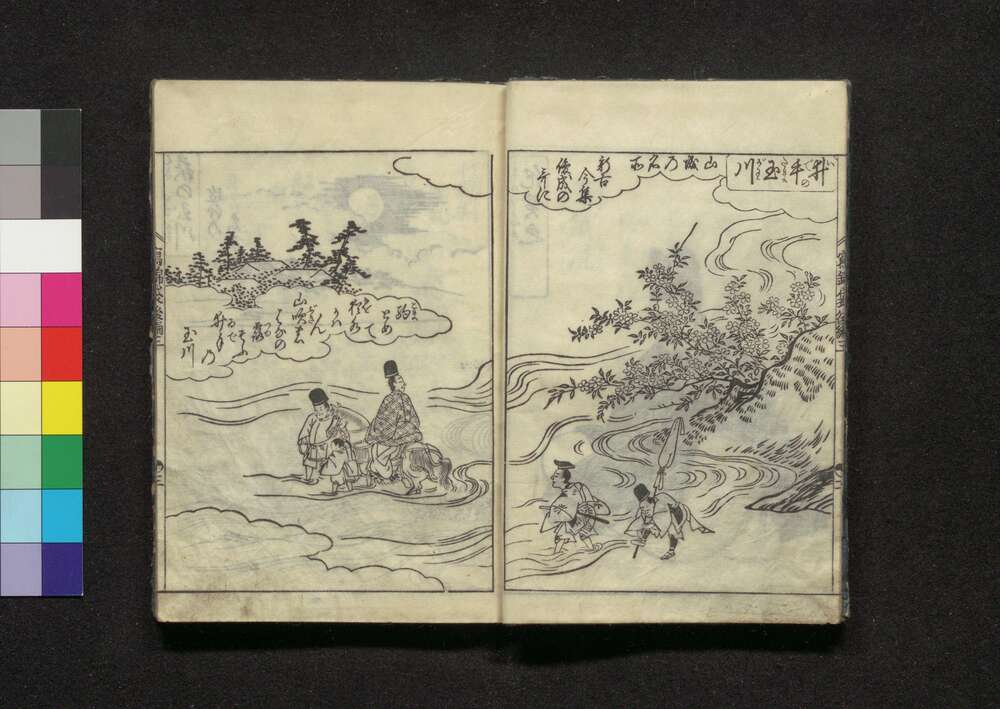 井手の玉川
山城乃名所
新古
今集
俊成の
哥に
駒
とめ
て
水
かはん
山吹
はなの
露
そふ
井手
乃
玉川